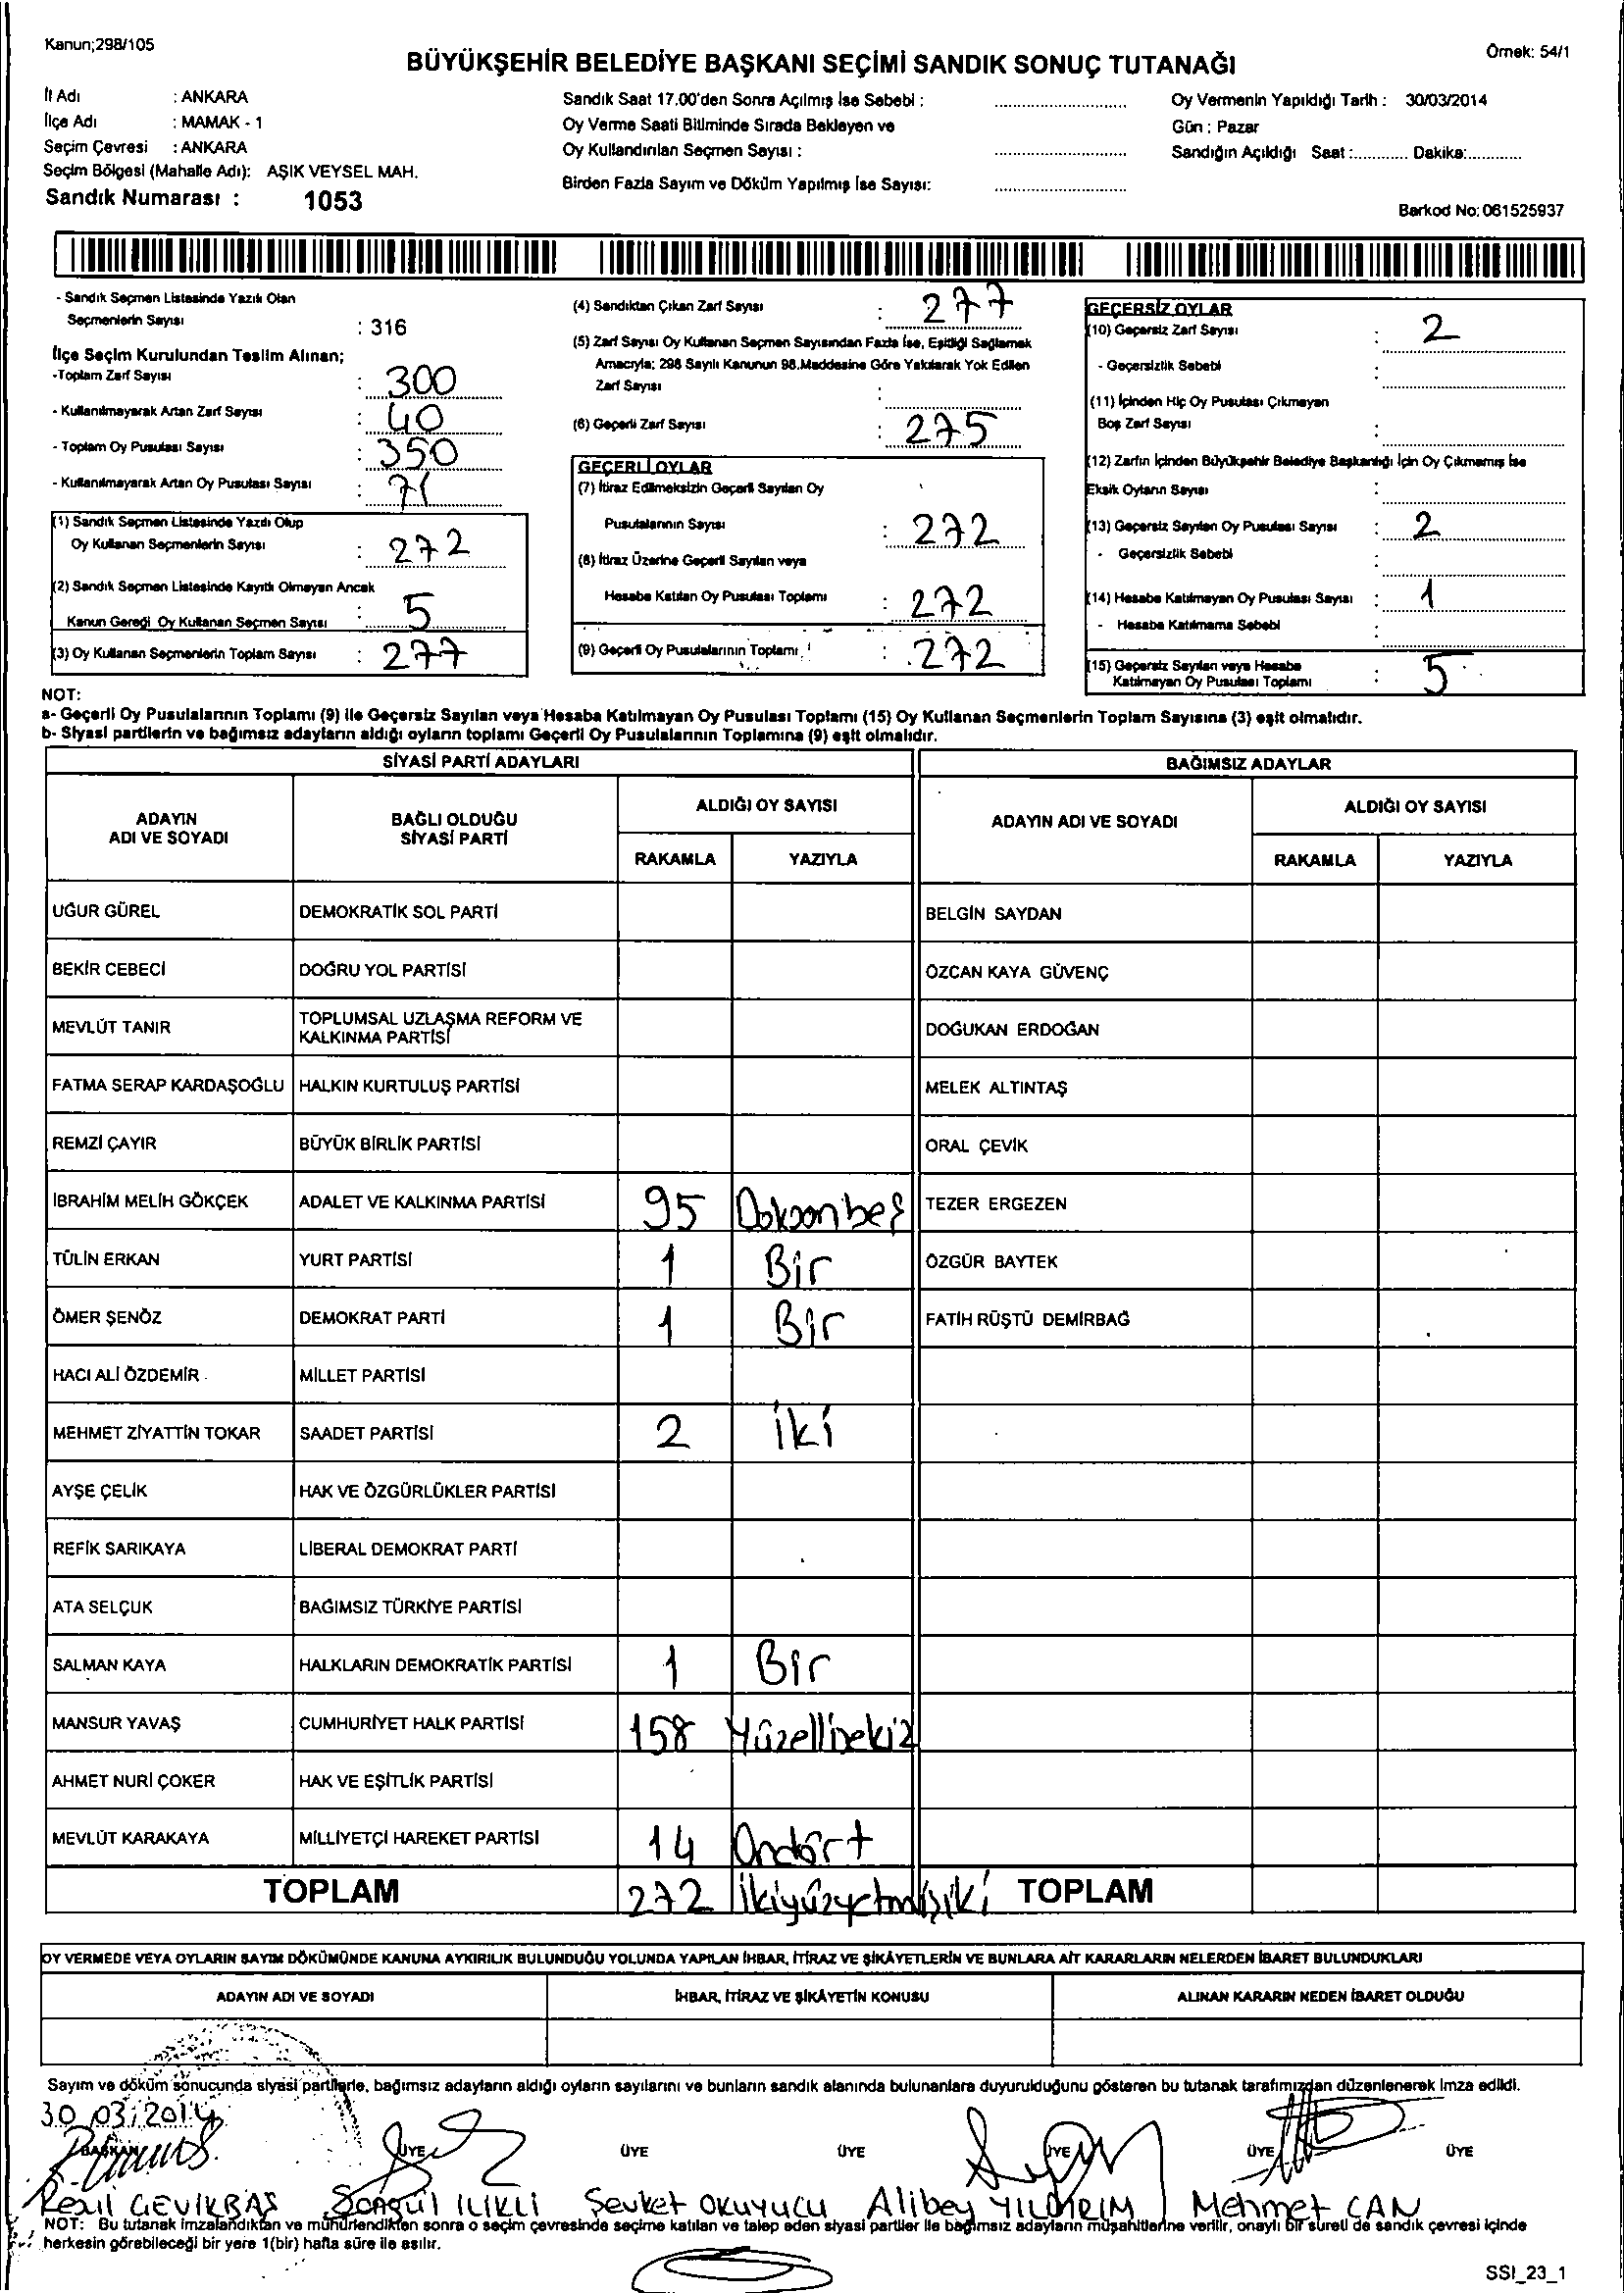 Kanun;298/105
Örnek: 54/1
BÜYÜKŞEHİR BELEDİYE BAŞKANI SEÇİMİ SANDIK SONUÇ TUTANAĞI
İl Adı : ANKARA
İlçe Adı : MAMAK - 1
Seçim Çevresi : ANKARA
Seçim Bölgesi (Mahalle Adı): AŞIK VEYSEL MAH.
Sandık Numarası : 1053
Sandık Saat 17.00'den Sonra Açılmış İse Sebebi :
Oy Verme Saati Bitiminde Sırada Bekleyen ve
Oy Kullandırılan Seçmen Sayısı :
Birden Fazla Sayım ve Döküm Yapılmış İse Sayısı:
Oy Vermenin Yapıldığı Tarih : 30/03/2014
Gün : Pazar
Sandığın Açıldığı Saat :............ Dakika:............
Barkod No: 061525937
- Sandık Seçmen Listesinde Yazılı Olan
Seçmenlerin Sayısı : 316
İlçe Seçim Kurulundan Teslim Alınan;
-Toplam Zarf Sayısı : 300
- Kullanılmayarak Artan Zarf Sayısı : 40
- Toplam Oy Pusulası Sayısı : 350
- Kullanılmayarak Artan Oy Pusulası Sayısı : 71
(1) Sandık Seçmen Listesinde Yazılı Olup
Oy Kullanan Seçmenlerin Sayısı : 272
(2) Sandık Seçmen Listesinde Kayıtlı Olmayan Ancak
Kanun Gereği Oy Kullanan Seçmen Sayısı : 5
(3) Oy Kullanan Seçmenlerin Toplam Sayısı : 277
(4) Sandıktan Çıkan Zarf Sayısı : 277
(5) Zarf Sayısı Oy Kullanan Seçmen Sayısından Fazla İse, Eşitliği Sağlamak
Amacıyla; 298 Sayılı Kanunun 98.Maddesine Göre Yakılarak Yok Edilen
Zarf Sayısı :
(6) Geçerli Zarf Sayısı : 275
GEÇERLİ OYLAR
(7) İtiraz Edilmeksizin Geçerli Sayılan Oy
Pusulalarının Sayısı : 272
(8) İtiraz Üzerine Geçerli Sayılan veya
Hesaba Katılan Oy Pusulası Toplamı : 272
(9) Geçerli Oy Pusulalarının Toplamı : 272
GEÇERSİZ OYLAR
(10) Geçersiz Zarf Sayısı : 2
- Geçersizlik Sebebi :
(11) İçinden Hiç Oy Pusulası Çıkmayan
Boş Zarf Sayısı :
(12) Zarfın İçinden Büyükşehir Belediye Başkanlığı İçin Oy Çıkmamış İse
Eksik Oyların Sayısı :
(13) Geçersiz Sayılan Oy Pusulası Sayısı : 2
- Geçersizlik Sebebi :
(14) Hesaba Katılmayan Oy Pusulası Sayısı : 1
- Hesaba Katılmama Sebebi :
(15) Geçersiz Sayılan veya Hesaba
Katılmayan Oy Pusulası Toplamı : 5
NOT:
a- Geçerli Oy Pusulalarının Toplamı (9) ile Geçersiz Sayılan veya Hesaba Katılmayan Oy Pusulası Toplamı (15) Oy Kullanan Seçmenlerin Toplam Sayısına (3) eşit olmalıdır.
b- Siyasi partilerin ve bağımsız adayların aldığı oyların toplamı Geçerli Oy Pusulalarının Toplamına (9) eşit olmalıdır.
SİYASİ PARTİ ADAYLARI BAĞIMSIZ ADAYLAR
ADAYIN ADI VE SOYADI BAĞLI OLDUĞU SİYASİ PARTİ ALDIĞI OY SAYISI ADAYIN ADI VE SOYADI ALDIĞI OY SAYISI
RAKAMLA YAZIYLA RAKAMLA YAZIYLA
UĞUR GÜREL DEMOKRATİK SOL PARTİ BELGİN SAYDAN
BEKİR CEBECİ DOĞRU YOL PARTİSİ ÖZCAN KAYA GÜVENÇ
MEVLÜT TANIR TOPLUMSAL UZLAŞMA REFORM VE KALKINMA PARTİSİ DOĞUKAN ERDOĞAN
FATMA SERAP KARDAŞOĞLU HALKIN KURTULUŞ PARTİSİ MELEK ALTINTAŞ
REMZİ ÇAYIR BÜYÜK BİRLİK PARTİSİ ORAL ÇEVİK
İBRAHİM MELİH GÖKÇEK ADALET VE KALKINMA PARTİSİ 95 Doksanbeş TEZER ERGEZEN
TÜLİN ERKAN YURT PARTİSİ 1 Bir ÖZGÜR BAYTEK
ÖMER ŞENÖZ DEMOKRAT PARTİ 1 Bir FATİH RÜŞTÜ DEMİRBAĞ
HACI ALİ ÖZDEMİR MİLLET PARTİSİ
MEHMET ZİYATTİN TOKAR SAADET PARTİSİ 2 iki
AYŞE ÇELİK HAK VE ÖZGÜRLÜKLER PARTİSİ
REFİK SARIKAYA LİBERAL DEMOKRAT PARTİ
ATA SELÇUK BAĞIMSIZ TÜRKİYE PARTİSİ
SALMAN KAYA HALKLARIN DEMOKRATİK PARTİSİ 1 Bir
MANSUR YAVAŞ CUMHURİYET HALK PARTİSİ 158 Yüzellisekiz
AHMET NURİ ÇOKER HAK VE EŞİTLİK PARTİSİ
MEVLÜT KARAKAYA MİLLİYETÇİ HAREKET PARTİSİ 14 Ondört
TOPLAM 272 İkiyüzyetmişiki TOPLAM
OY VERMEDE VEYA OYLARIN SAYIM DÖKÜMÜNDE KANUNA AYKIRILIK BULUNDUĞU YOLUNDA YAPILAN İHBAR, İTİRAZ VE ŞİKÂYETLERİN VE BUNLARA AİT KARARLARIN NELERDEN İBARET BULUNDUKLARI
ADAYIN ADI VE SOYADI İHBAR, İTİRAZ VE ŞİKÂYETİN KONUSU ALINAN KARARIN NEDEN İBARET OLDUĞU
Sayım ve döküm sonucunda siyasi partilerle, bağımsız adayların aldığı oyların sayılarını ve bunların sandık alanında bulunanlara duyurulduğunu gösteren bu tutanak tarafımızdan düzenlenerek imza edildi.
30.03.2014
BAŞKAN ÜYE ÜYE ÜYE ÜYE ÜYE ÜYE
ÇEVİKBAŞ Songül ILIKLI Şevket OKUYUCU Alibey YILDIRIM Mehmet CAN
NOT: Bu tutanak imzalandıktan ve mühürlendikten sonra o seçim çevresinde seçime katılan ve talep eden siyasi partiler ile bağımsız adayların müşahitlerine verilir, onaylı bir sureti de sandık çevresi içinde
herkesin görebileceği bir yere 1(bir) hafta süre ile asılır.
SSI_23_1